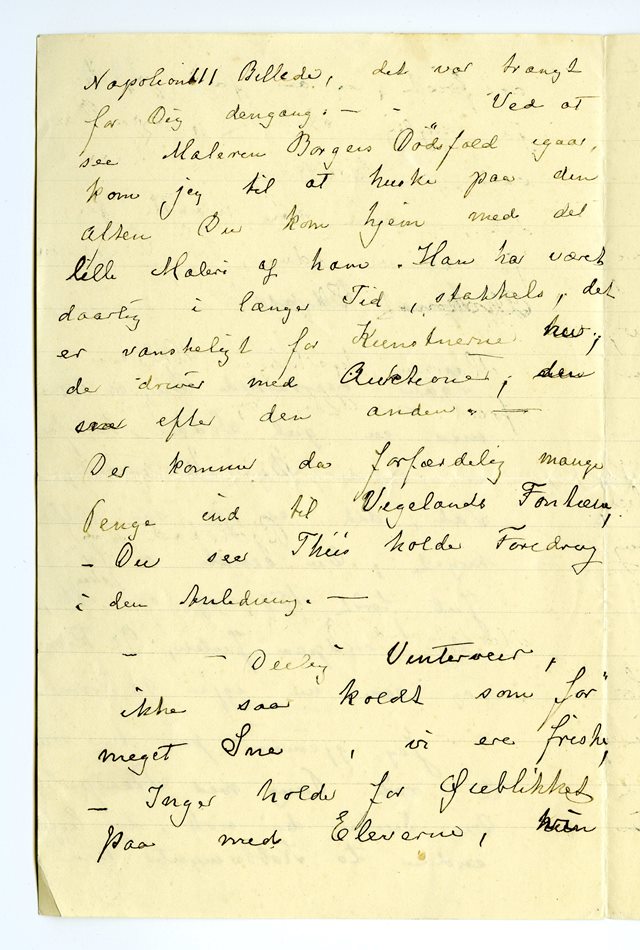 NapoleonIII Billede, det var trangt
for Dig dengang. — - Ved at
see Maleren Borgens Dødsfald igaar,
kom jeg til at huske paa den
Aften Du kom hjem med det
lille Maleri af ham. Han har været
daarlig i længer Tid, stakkels, det
er vanskeligt for Kunstnerne her,
de driver med Auktioner, den
ene efter den anden. —
Der kommer da forfærdelig mange
Penge ind til Vegelands Fontæn,
– Du seer Thiis holder Foredrag
i den Anledning. —
– – Deilig Vinterveir,
ikke saa koldt som før
meget Sne, vi ere friske,
– Inger holder for Øieblikket
paa med Eleverne, hun